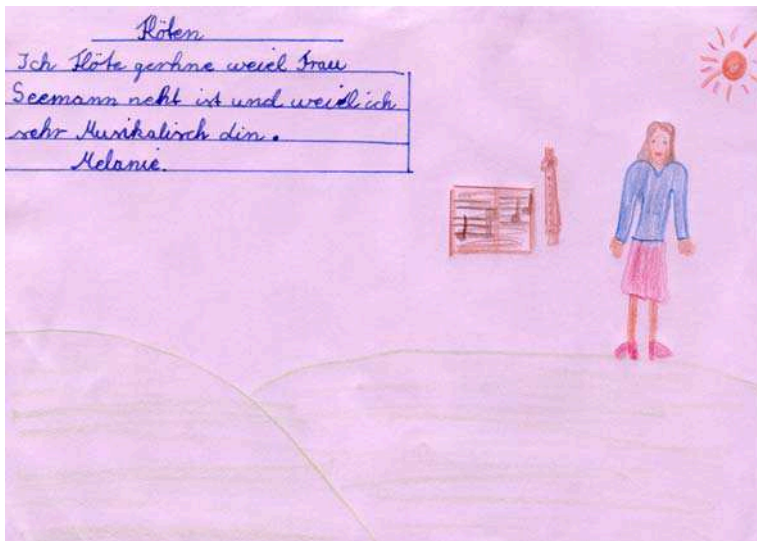 Flöten
Ich Flöte gerhne weiel Frau
Seemann neht ist und weiel ich
sehr Musikalisch din.
Melanie.